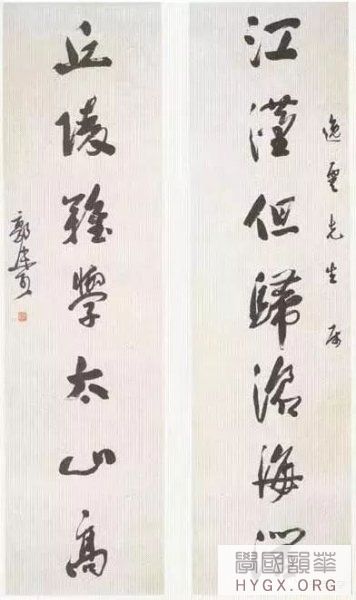 逸雲先生屬
江漢但歸滄海
丘陵難學太山高
郭
華韻國學
HYGX.ORG